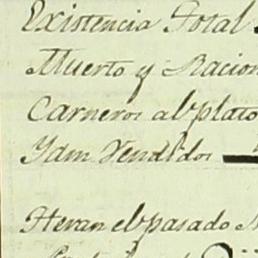 Existencia Total
Muerto y Racion
Carneros al plato
Ydm Vendidos
Heran el pasado